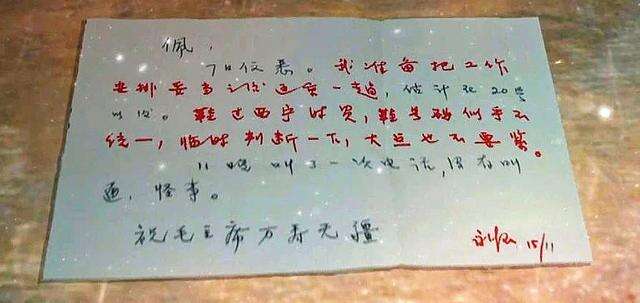 佩，
7日信悉。我准备把工作
安排妥当返一趟，估计在20号
以后。鞋过西宁时买，鞋号码似乎不
统一，临时判断一下，大点也不要紧。
11晚叫了一次电话，没有叫
通，怪事。
祝毛主席万寿无疆
15/11